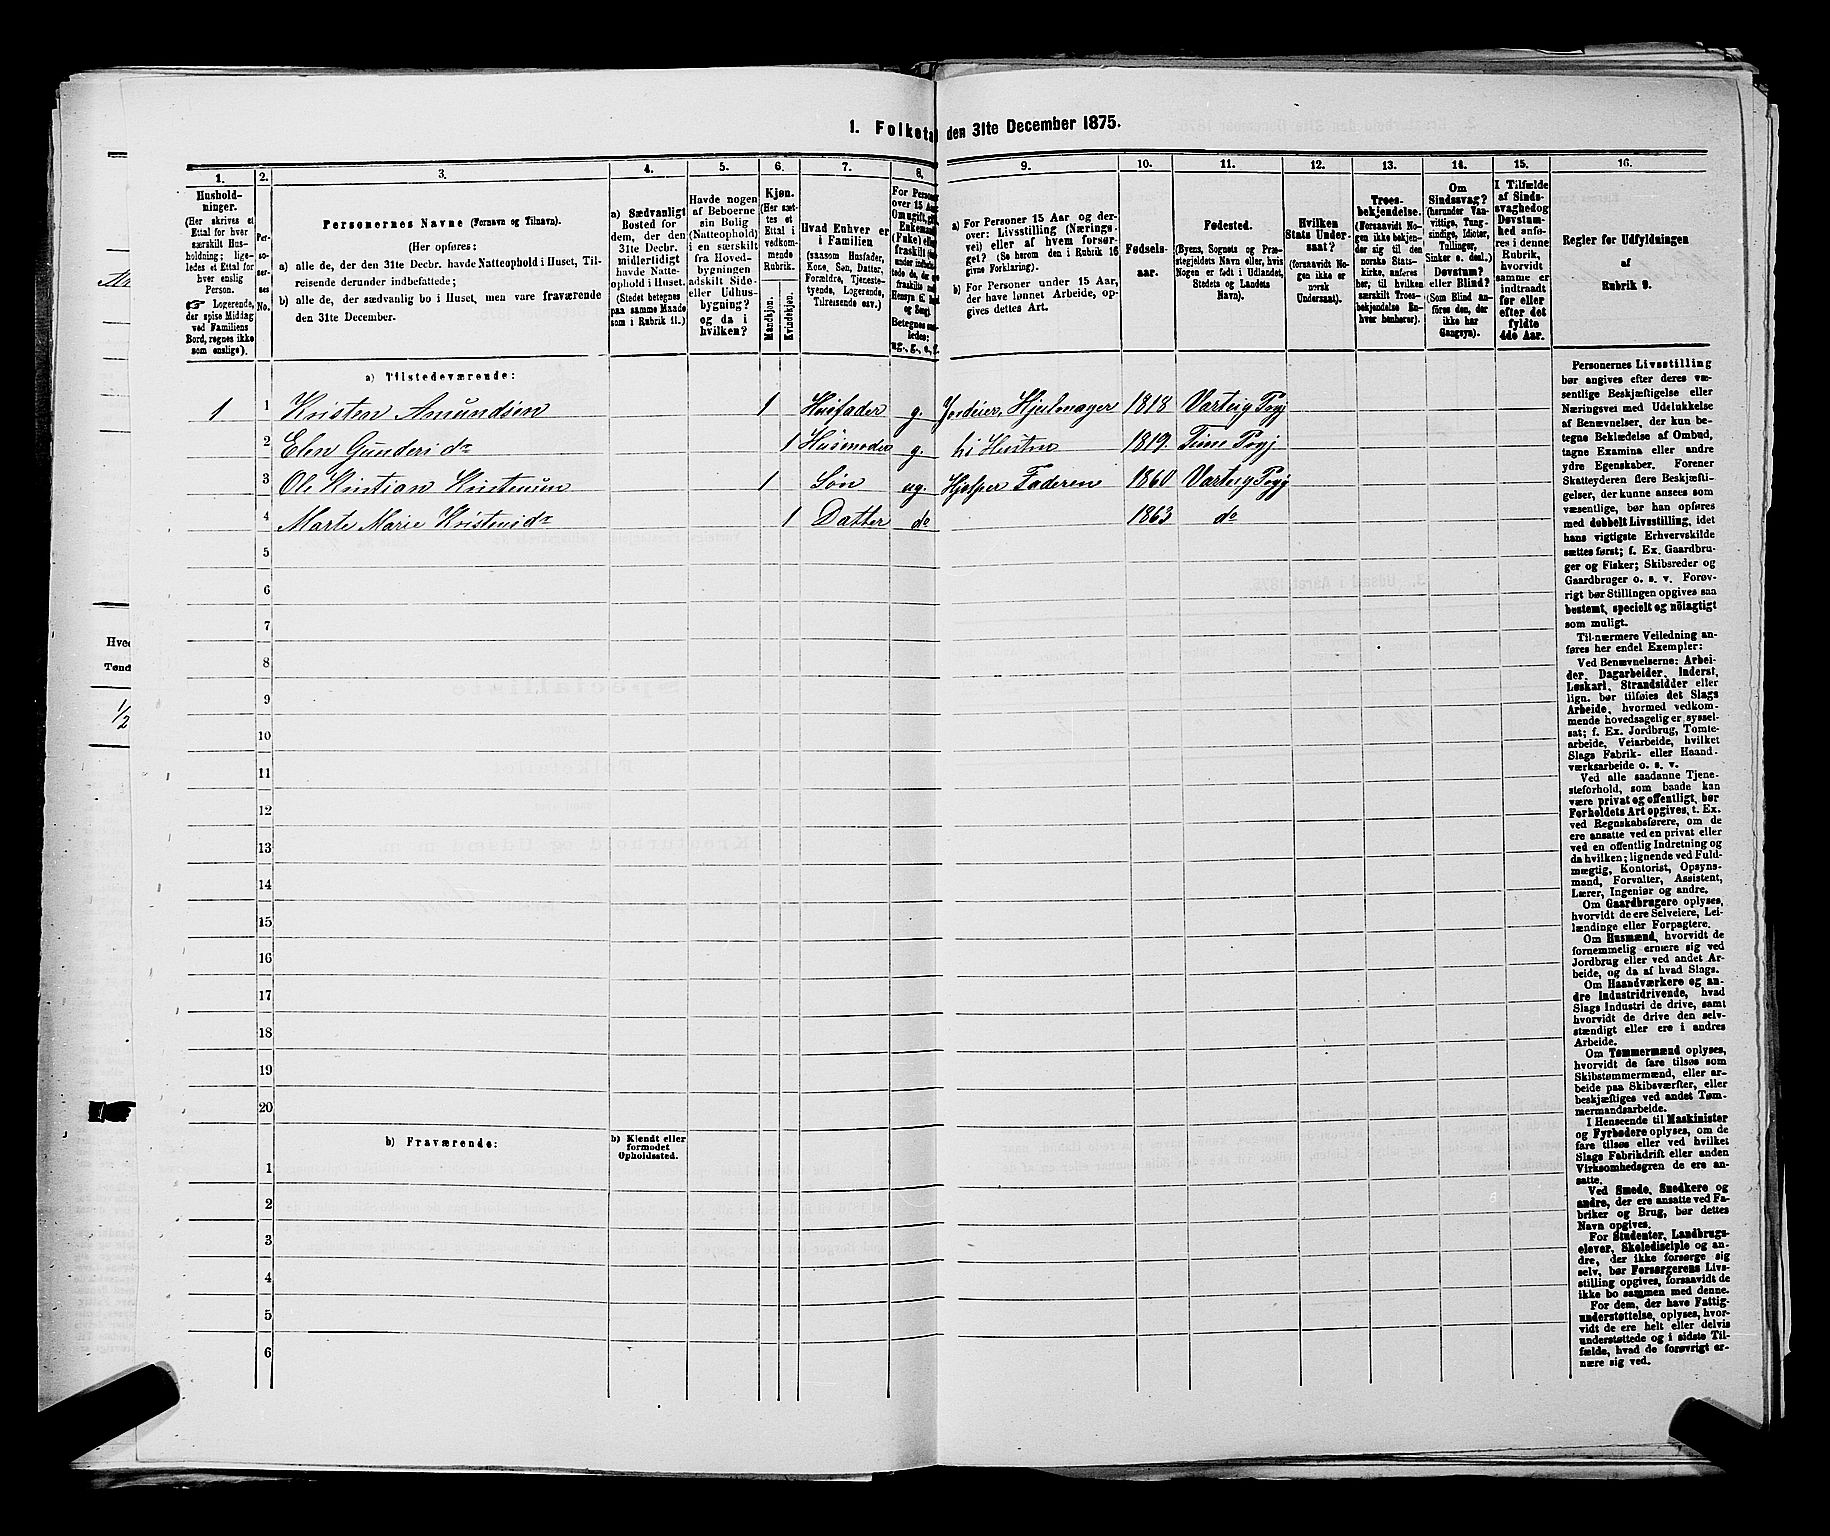 1. Folketal den 31te December 1875.
1.
2.
3.
4.
5.
6.
7.
8.
9.
10.
11.
12.
13.
14.
15.
16.
Hushold-
ninger.
(Her skrives et
Ettal for hver
særskilt Hus-
holdning; lige-
ledes et Ettal for
hver enslig
Person.
☞ Logerende,
der spise Middag
ved Familiens
Bord, regnes ikke
som enslige).
Per-
so-
ner-
nes
No.
Personernes Navne (Fornavn og Tilnavn).
(Her opføres:
a) alle de, der den 31te Decbr. havde Natteophold i Huset, Til-
reisende derunder indbefattede;
b) alle de, der sædvanlig bo i Huset, men vare fraværende
den 31te December.
a) Sædvanligt
Bosted for
dem, der den
31te Decbr.
midlertidigt
havde Natte-
ophold i Huset.
(Stedet betegnes
paa samme Maade
som i Rubrik 11.)
Havde nogen
af Beboerne
sin Bolig
(Natteophold)
i en særskilt
fra Hoved-
bygningen
adskilt Side-
eller Udhus-
bygning?
og da i
hvilken?
Kjøn.
(Her sæt-
tes et
Ettal i
vedkom-
mende
Rubrik.
Mandkjøn.
Kvindekjøn.
Hvad Enhver er
i Familien
(saasom Husfader,
Kone, Søn, Datter,
Forældre, Tjeneste-
tyende, Logerende,
Tilreisende osv.)
For Person
over 15 Aar
Omugift, gift
Enkemand
(Enke) eller
fraskilt
Betegnes saa-
ledes:
ug., g., e., f.
a) For Personer 15 Aar og der-
over: Livsstilling (Nærings-
vei) eller af hvem forsør-
get? (Se herom den i Rubrik 16
givne Forklaring).
b) For Personer under 15 Aar,
der have lønnet Arbeide, op-
gives dettes Art.
Fødsels-
aar.
Fødested.
(Byens, Sognets og Præ-
stegjeldets Navn eller, hvis
Nogen er født i Udlandet,
Stedets og Landets
Navn).
Hvilken
Stats Under-
saat?
(forsaavidt No-
gen ikke er
norsk
Undersaat).
Troes-
bekjendelse.
(Forsaavidt No-
gen ikke bekjen-
der sig til den
norske Stats-
kirke, anføres
her, til hvilken
særskilt Troes-
bekjendelse En-
hver henhører).
Om
Sindssvag?
(herunder Van-
vittige, Tung-
sindige, Idioter,
Tullinger,
Sinker o. desl.)
Døvstum?
eller Blind?
(Som Blind an-
føres den, der
ikke har
Gangsyn).
I Tilfælde
af Sinds-
svaghed og
Døvstum-
hed anfø-
res i denne
Rubrik,
hvorvidt
samme er
indtraadt
før eller
efter det
fyldte
4de Aar.
Regler for Udfyldningen
af
Rubrik 9.
a) Tilstedeværende:
1 1 Kristen Amundsen 1 Husfader g. Jordeier, Hjulmager 1818 Varteig Pgj
2 Elen Gundersda 1 Husmoder g. hs Hustru 1819. Tune Pgj.
3 Ole Kristian Kristensen 1 Søn ug. Hjælper Faderen 1860 Varteig Pgj
4 Marte Marie Kristensda 1 Datter do 1863 do
5
6
7
8
9
10
11
12
13
14
15
16
17
18
19
20
b) Fraværende:
b) Kjendt eller
formodet
Opholdssted.
1
2
3
4
5
6
Personernes Livsstilling
bør angives efter deres væ-
sentlige Beskjæftigelse eller
Næringsvei med Udelukkelse
af Benævnelser, der kun be-
tegne Beklædelse af Ombud,
tagne Examina eller andre
ydre Egenskaber. Forener
Skatteyderen flere Beskjæfti-
gelser, der kunne ansees som
væsentlige, bør han opføres
med dobbelt Livsstilling, idet
hans vigtigste Erhvervskilde
sættes først; f. Ex. Gaardbru-
ger og Fisker; Skibsreder og
Gaardbruger o. s. v. Forøv-
rigt bør Stillingen opgives saa
bestemt, specielt og nøiagtigt
som muligt.
Til nærmere Veiledning an-
føres her endel Exempler:
Ved Benævnelserne: Arbei-
der, Dagarbeider, Inderst,
Løskarl, Strandsidder eller
lign. bør tilføies det Slags
Arbeide, hvormed vedkom-
mende hovedsagelig er syssel-
sat; f. Ex. Jordbrug, Tomte-
arbeide, Veiarbeide, hvilket
Slags Fabrik- eller Haand-
værksarbeide o. s. v.
Ved alle saadanne Tjene-
steforhold, som baade kan
være privat og offentligt, bør
Forholdets Art opgives, t. Ex.
ved Regnskabsførere, om de
ere ansatte ved en privat eller
ved en offentlig Indretning og
da hvilken; lignende ved Fuld-
mægtig, Kontorist, Opsyns-
mand, Forvalter, Assistent,
Lærer, Ingeniør og andre.
Om Gaardbrugere oplyses,
hvorvidt de ere Selveiere, Lei-
lændinge eller Forpagtere.
Om Husmænd, hvorvidt de
fornemmelig ernære sig ved
Jordbrug eller ved andet Ar-
beide, og da af hvad Slags.
Om Haandværkere og an-
dre Industridrivende, hvad
Slags Industri de drive, samt
hvorvidt de drive den selv-
stændigt eller ere i andres
Arbeide.
Om Tømmermænd oplyses,
hvorvidt de fare tilsøs som
Skibstømmermænd, eller ar-
beide paa Skibsværfter, eller
beskjæftiges ved andet Tøm-
mermandsarbeide.
I Henseende til Maskinister
og Fyrbødere oplyses, om de
fare tilsøs eller ved hvilket
Slags Fabrikdrift eller anden
Virksomhedsgren de ere an-
satte.
Ved Smede, Snedkere og
andre, der ere ansatte ved Fa-
briker og Brug, bør dettes
Navn opgives.
For Studenter, Landbrugs-
elever, Skoledisciple og an-
dre, der ikke forsørge sig
selv, bør Forsørgerens Livs-
stilling opgives, forsaavidt de
ikke bo sammen med denne.
For dem, der have Fattig-
understøttelse, oplyses, hvor-
vidt de ere helt eller delvis
understøttede og i sidste Til-
fælde, hvad de forøvrigt er-
nære sig ved.
Tønd
1/2